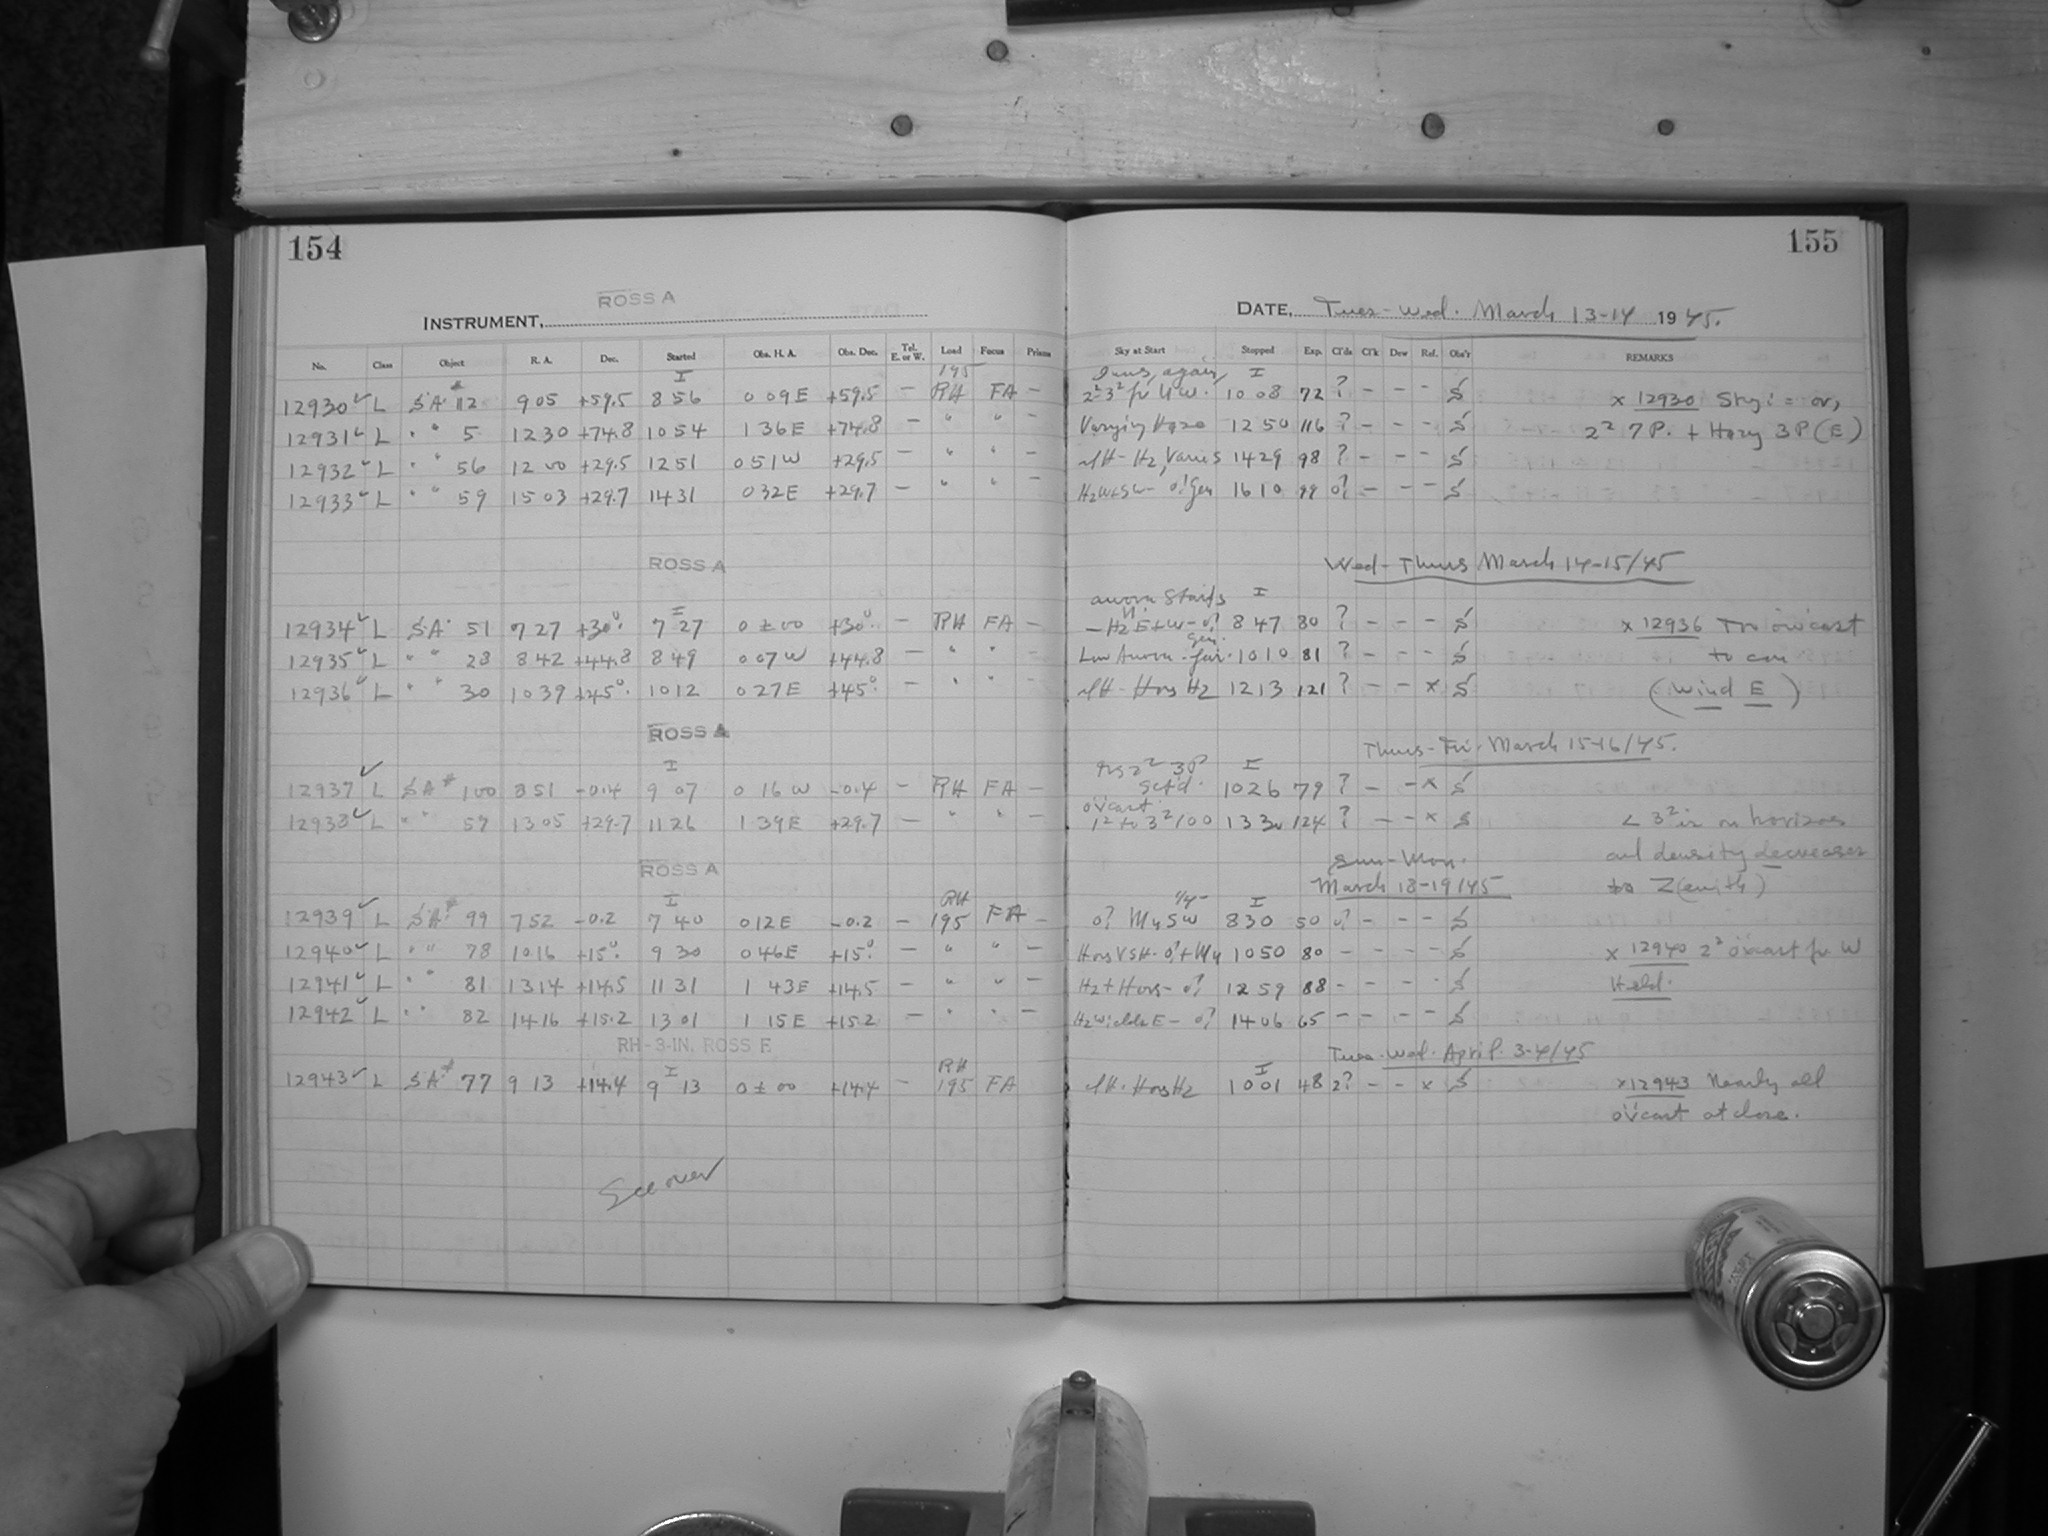 154
ROSS A
INSTRUMENT,
No. Class Object R. A. Dec. Started Obs. H. A. Obs. Dec. Tel. E. or W. Load Focus Prisms
I 195
12930 ✓ L S.A.* 112 9 05 +59.5 8 56 0 09 E +59.5 — RH FA —
12931 ✓ L " " 5 12 30 +74.8 10 54 1 36 E +74.8 — " " —
12932 ✓ L " " 56 12 00 +29.5 12 51 0 51 W +29.5 — " " —
12933 ✓ L " " 59 15 03 +29.7 14 31 0 32 E +29.7 — " " —
ROSS A
I
12934 ✓ L S.A. 51 7 27 +30° 7 27 0 ± 00 +30° — RH FA —
12935 ✓ L " " 28 8 42 +44.8 8 49 0 07 W +44.8 — " " —
12936 ✓ L " " 30 10 39 +45° 10 12 0 27 E +45° — " " —
ROSS A
I
12937 ✓ L S.A.* 100 8 51 -0.4 9 07 0 16 W -0.4 — RH FA —
12938 ✓ L " " 57 13 05 +29.7 11 26 1 39 E +29.7 — " " —
ROSS A
I RH
12939 ✓ L S.A.* 99 7 52 -0.2 7 40 0 12 E -0.2 — 195 FA —
12940 ✓ L " " 78 10 16 +15° 9 30 0 46 E +15° — " " —
12941 ✓ L " " 81 13 14 +14.5 11 31 1 43 E +14.5 — " " —
12942 ✓ L " " 82 14 16 +15.2 13 01 1 15 E +15.2 — " " —
RH-3-IN. ROSS F
I RH
12943 ✓ L S.A.* 77 9 13 +14.4 9 13 0 ± 00 +14.4 — 195 FA
See over
155
DATE, Tues-Wed. March 13-14 1945.
Sky at Start Stopped Exp. Cl'ds Cl'k Dew Ref. Obs'r REMARKS
again, I
10 08 72 ? — — — S x 12930
Varying Haze 12 50 116 ? — — — S 2² 7P. + Hazy 3P (E)
H2, Varies 14 29 98 ? — — — S
16 10 99 0? — — — S
Wed-Thurs March 14-15/45
aurora Starts I
8 47 80 ? — — — S x 12936
Low Aurora - fair 10 10 81 ? — — — S
Hors H2 12 13 121 ? — — x S (Wind E)
Thurs-Fri. March 15-16/45.
3P I
sct'd. 10 26 79 ? — — x S
ov'cast
1² to 3²/00 13 30 124 ? — — x S on horizon
and density decreases
Sun-Mon.
March 18-19/45 to Z(enith)
I
0? SW 8 30 50 0? — — — S
10 50 80 — — — — S x 12940 2² ov'cast fr W
H2 + Hors - 0? 12 59 88 — — — — S Held.
14 06 65 — — — — S
Tues-Wed. April. 3-4/45
I
Hors H2 10 01 48 2? — — x S x 12943 Nearly all
ov'cast at close.